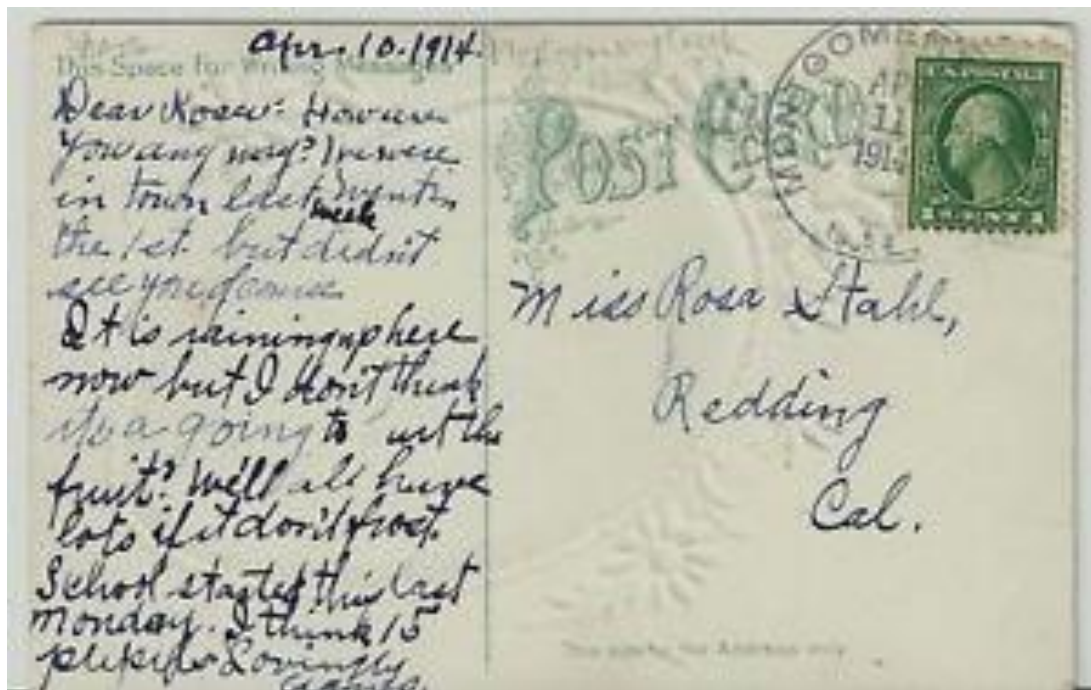 Apr. 10. 1914.
This Space for Writing Messages
Dear Rosa:- How are
you any way? We were
in town last
week
the 1st. but didn't
see you of course
It is raining up here
now but I don't think
its a going to the
fruit? We'll all have
lots if it don't frost.
School started this last
Monday. I think 15
Lovingly
POST CARD
MONTGOMERY
AP
11
1914
U.S. POSTAGE
Miss Rosa Stahl,
Redding
Cal.
This space for Address only